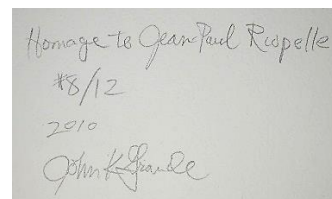 Homage to Jean Paul Riopelle
#8/12
2010
John K Grande